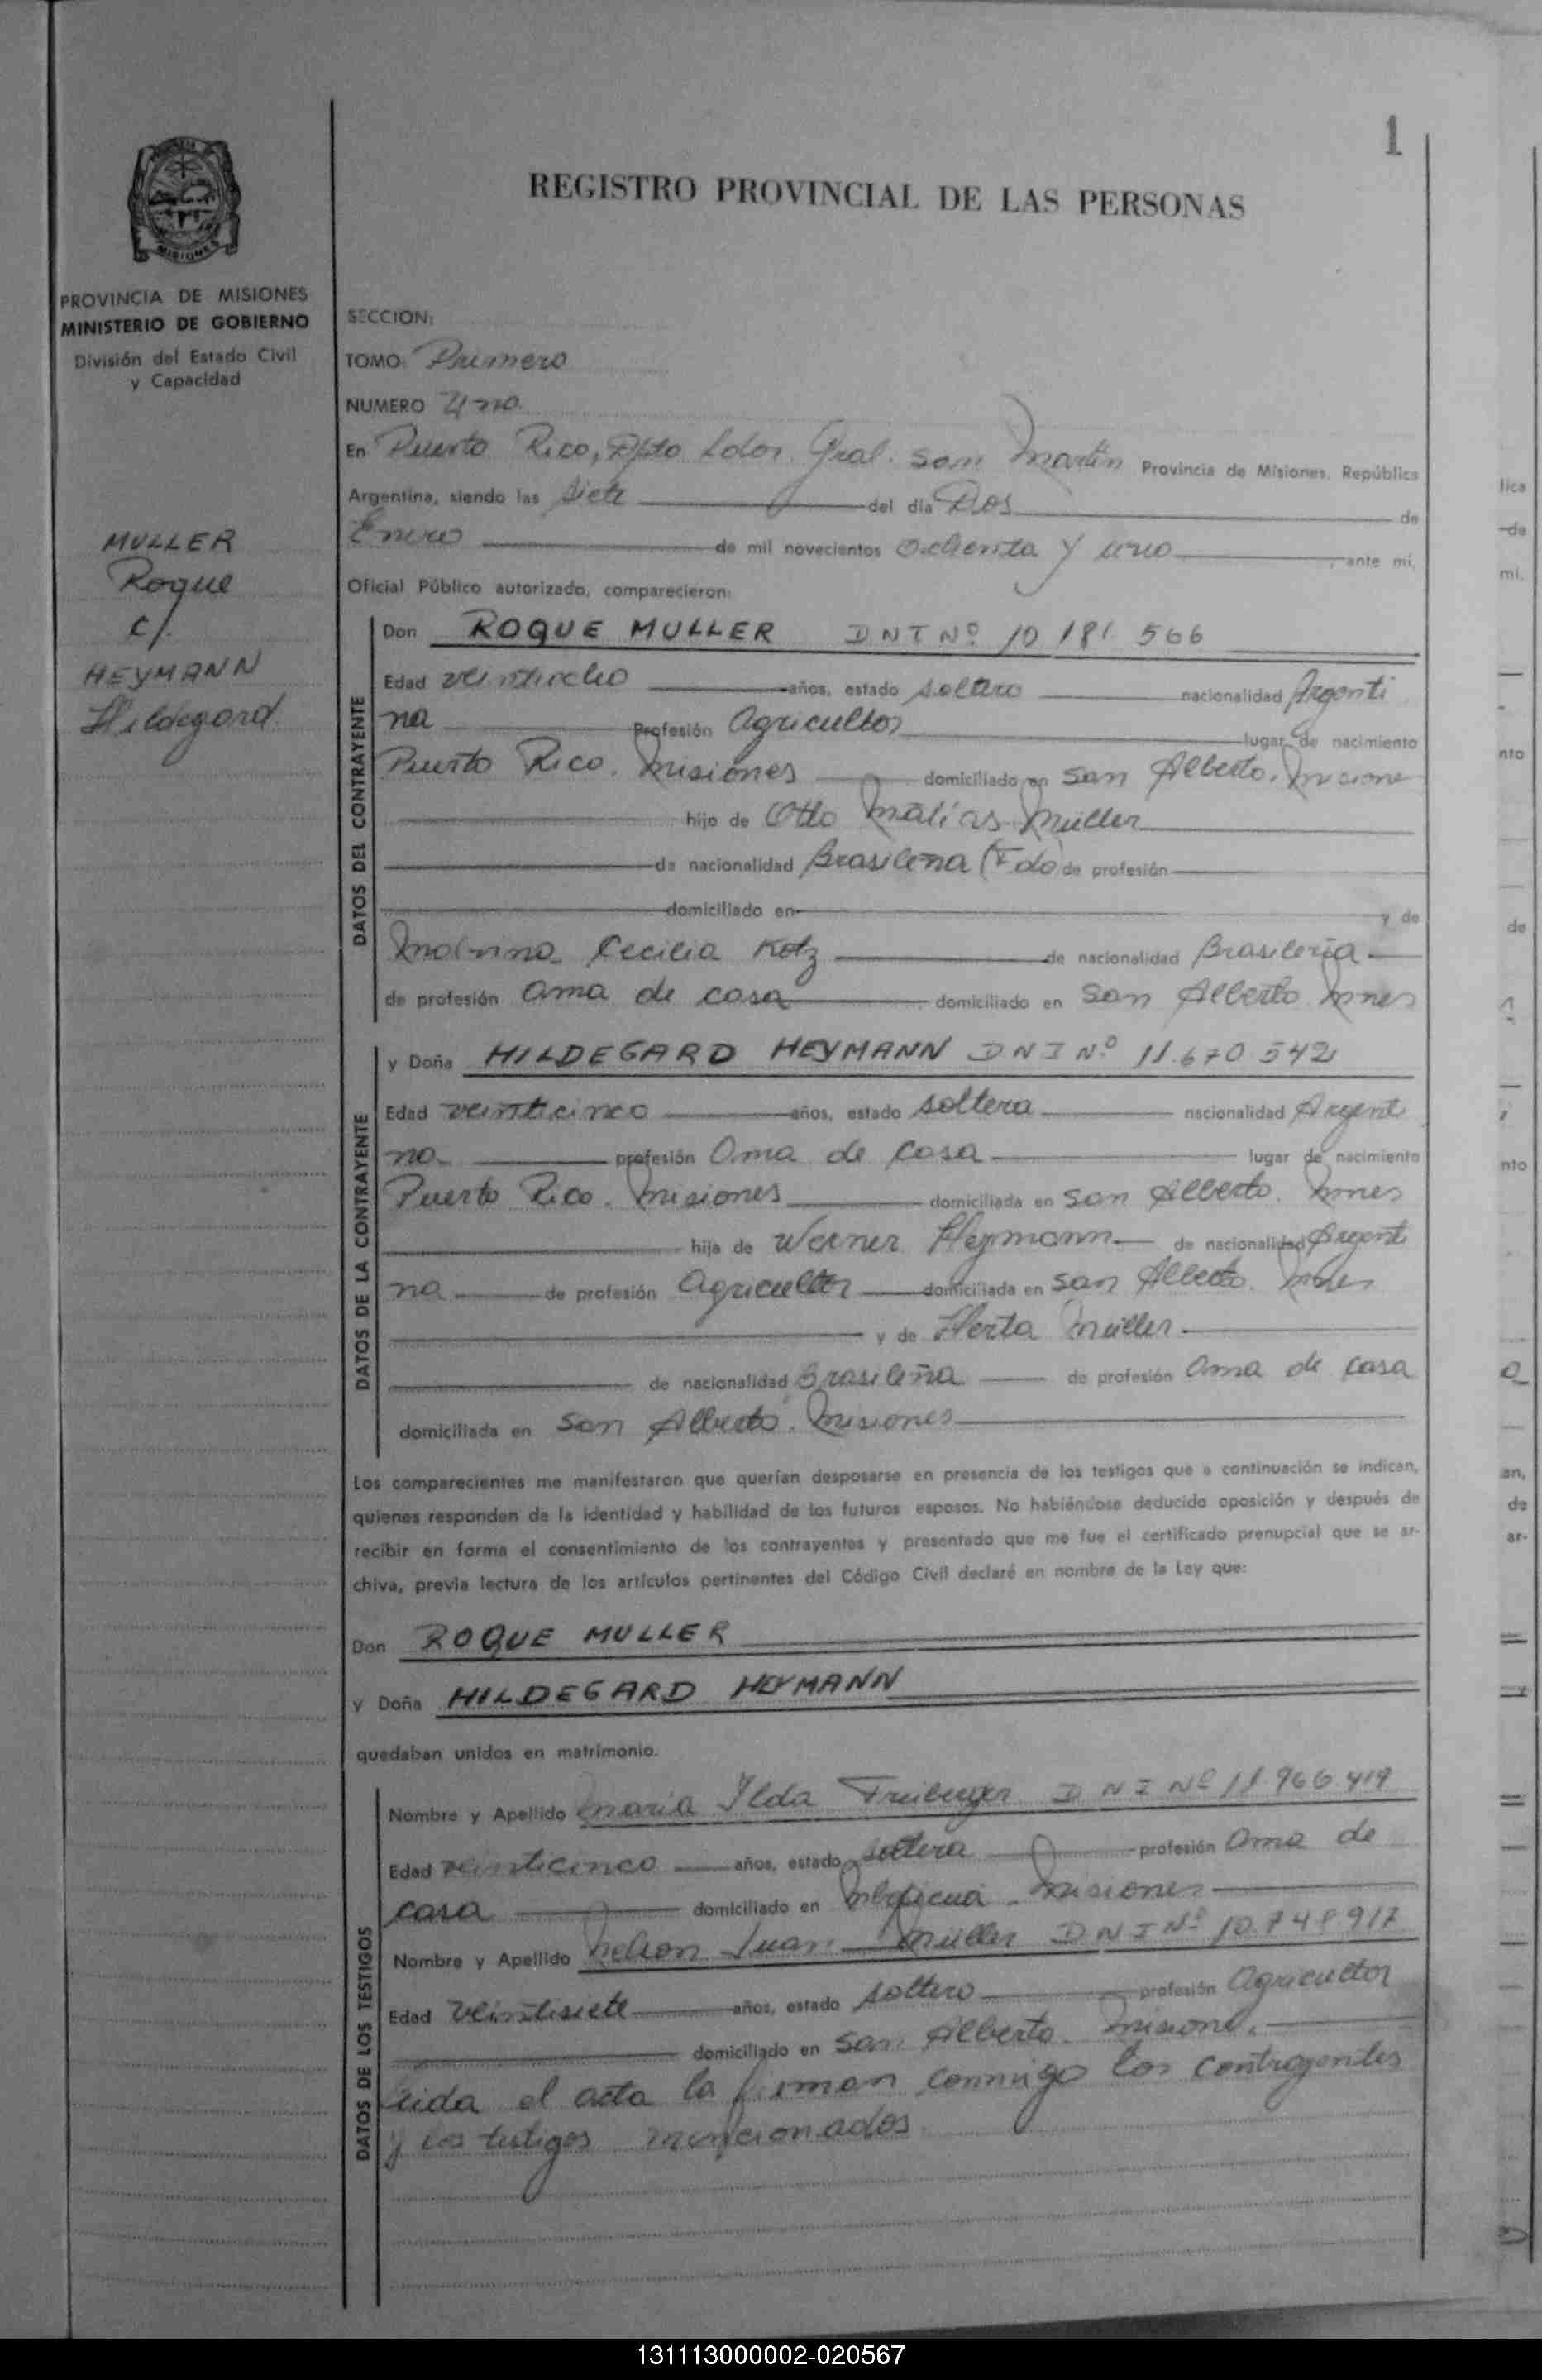 1
REGISTRO PROVINCIAL DE LAS PERSONAS
MISIONES
PROVINCIA DE MISIONES
MINISTERIO DE GOBIERNO
División del Estado Civil
y Capacidad
MULLER
Roque
c/.
HEYMANN
Hildegard
SECCION:
TOMO: Primero
NUMERO Uno
En Puerto Rico, Dpto Ldor. Gral. San Martín Provincia de Misiones, República
Argentina, siendo las siete del día Dos de
Enero de mil novecientos ochenta y uno ante mí,
Oficial Público autorizado, comparecieron:
DATOS DEL CONTRAYENTE
Don ROQUE MULLER DNI Nº 10 181 566
Edad veintiocho años, estado soltero nacionalidad Argenti
na Profesión Agricultor lugar de nacimiento
Puerto Rico. Misiones domiciliado en San Alberto. Misiones
hijo de Otto Matías Müller
de nacionalidad Brasileña (Fdo) de profesión
domiciliado en y de
Cecilia Kotz de nacionalidad Brasileña
de profesión ama de casa domiciliado en San Alberto Mnes
DATOS DE LA CONTRAYENTE
y Doña HILDEGARD HEYMANN DNI Nº 11.670 542
Edad veinticinco años, estado soltera nacionalidad Argenti
na profesión Ama de casa lugar de nacimiento
Puerto Rico. Misiones domiciliada en San Alberto. Mnes
hija de Werner Heymann de nacionalidad Argenti
na de profesión Agricultor domiciliada en San Alberto. Mnes
y de Herta Müller
de nacionalidad Brasileña de profesión Ama de casa
domiciliada en San Alberto. Misiones
Los comparecientes me manifestaron que querían desposarse en presencia de los testigos que a continuación se indican,
quienes responden de la identidad y habilidad de los futuros esposos. No habiéndose deducido oposición y después de
recibir en forma el consentimiento de los contrayentes y presentado que me fue el certificado prenupcial que se ar-
chiva, previa lectura de los artículos pertinentes del Código Civil declaré en nombre de la Ley que:
Don ROQUE MULLER
y Doña HILDEGARD HEYMANN
quedaban unidos en matrimonio.
DATOS DE LOS TESTIGOS
Nombre y Apellido Maria Ilda Freiberger DNI Nº 11.966.419
Edad veinticinco años, estado soltera profesión Ama de
casa domiciliado en Mbopicuá. Misiones
Nombre y Apellido Nelson Juan Müller DNI Nº 10.748.917
Edad veintisiete años, estado soltero profesión Agricultor
domiciliado en San Alberto. Misiones.
Leida el acta la firman conmigo los contrayentes
y los testigos mencionados.
131113000002-020567